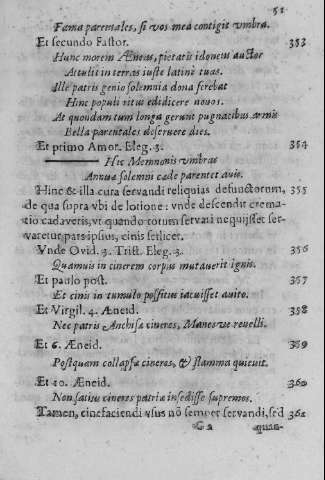 51
Fama parentales, si vos mea contigit vmbra.
Et secundo Fastor. 353
Hunc morem Æneas, pietatis idoneus auctor
Attulit in terras iuste latine tuas.
Ille patris genio solemnia dona ferebat
Hinc populi ritus edidicere nouos.
At quondam tum longa gerunt pugnacibus armis
Bella parentales deseruere dies.
Et primo Amor. Eleg. 3. 354
Hic Memnonis vmbras
Annua solemni cæde parentet auis.
Hinc & illa cura seruandi reliquias defunctorum, 355
de qua supra vbi de lotione: vnde descendit crema-
tio cadaveris, vt quando totum servari nequisset ser-
varetur pars ipsius, cinis scilicet.
Vnde Ovid. 3. Trist. Eleg. 3. 356
Quamuis in cinerem corpus mutauerit ignis.
Et paulo post. 357
Et cinis in tumulo positus iacuisset auito.
Et Virgil. 4. Æneid. 358
Nec patris Anchisæ cineres, Manesve revelli.
Et 6. Æneid. 359
Postquam collapsæ cineres, & flamma quieuit.
Et 10. Æneid. 360
Non satius cineres patriæ insedisse supremos.
Tamen, cinefaciendi vsus nõ semper servandi, sed 361
G 2 quan-